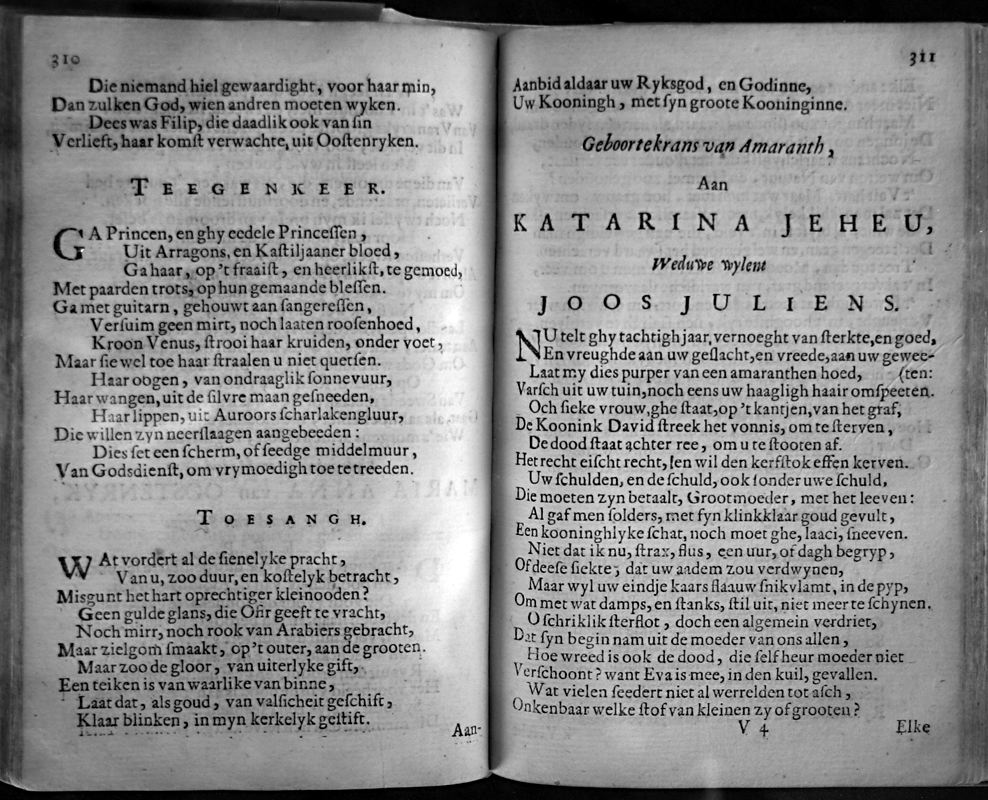 310
Die niemand hiel gewaardight, voor haar min,
Dan zulken God, wien andren moeten wyken.
Dees was Filip, die daadlik ook van ſin
Verlieft, haar komſt verwachte, uit Ooſtenryken.
TEEGENKEER.
GA Princen, en ghy eedele Princeſſen,
Uit Arragons, en Kaſtiljaaner bloed,
Ga haar, op 't fraaiſt, en heerlikſt, te gemoed,
Met paarden trots, op hun gemaande bleſſen.
Ga met guitarn, gehouwt aan ſangereſſen,
Verſuim geen mirt, noch laaten rooſenhoed,
Kroon Venus, ſtrooi haar kruiden, onder voet,
Maar ſie wel toe haar ſtraalen u niet quetſen.
Haar oogen, van ondraaglik ſonnevuur,
Haar wangen, uit de ſilvre maan geſneeden,
Haar lippen, uit Auroors ſcharlakengluur,
Die willen zyn neerſlaagen aangebeeden:
Dies ſet een ſcherm, of ſeedge middelmuur,
Van Godsdienſt, om vrymoedigh toe te treeden.
TOESANGH.
WAt vordert al de ſienelyke pracht,
Van u, zoo duur, en koſtelyk betracht,
Misgunt het hart oprechtiger kleinooden?
Geen gulde glans, die Ofir geeft te vracht,
Noch mirr, noch rook van Arabiers gebracht,
Maar zielgom ſmaakt, op 't outer, aan de grooten.
Maar zoo de gloor, van uiterlyke gift,
Een teiken is van waarlike van binne,
Laat dat, als goud, van valſicheit geſchift,
Klaar blinken, in myn kerkelyk geſtift.
Aan-
311
Aanbid aldaar uw Ryksgod, en Godinne,
Uw Kooningh, met ſyn groote Kooninginne.
Geboortekrans van Amaranth,
Aan
KATARINA JEHEU,
Weduwe wylent
JOOS JULIENS.
NU telt ghy tachtigh jaar, vernoeght van ſterkte, en goed,
En vreughde aan uw geſlacht, en vreede, aan uw gewee-
Laat my dies purper van een amaranthen hoed, (ten:
Varſch uit uw tuin, noch eens uw haagligh haair omſpeeten.
Och ſieke vrouw, ghe ſtaat, op 't kantjen, van het graf,
De Koonink David ſtreek het vonnis, om te ſterven,
De dood ſtaat achter ree, om u te ſtooten af.
Het recht eiſcht recht, en wil den kerfſtok effen kerven.
Uw ſchulden, en de ſchuld, ook ſonder uwe ſchuld,
Die moeten zyn betaalt, Grootmoeder, met het leeven:
Al gaf men ſolders, met ſyn klinkklaar goud gevult,
Een kooninghlyke ſchat, noch moet ghe, laaci, ſneeven.
Niet dat ik nu, ſtrax, flus, een uur, of dagh begryp,
Of deeſe ſiekte; dat uw aadem zou verdwynen,
Maar wyl uw eindje kaars flaauw ſnikvlamt, in de pyp,
Om met wat damps, en ſtanks, ſtil uit, niet meer te ſchynen.
O ſchriklik ſterflot, doch een algemein verdriet,
Dat ſyn begin nam uit de moeder van ons allen,
Hoe wreed is ook de dood, die ſelf heur moeder niet
Verſchoont? want Eva is mee, in den kuil, gevallen.
Wat vielen ſeedert niet al werrelden tot aſch,
Onkenbaar welke ſtof van kleinen zy of grooten?
V 4
Elke